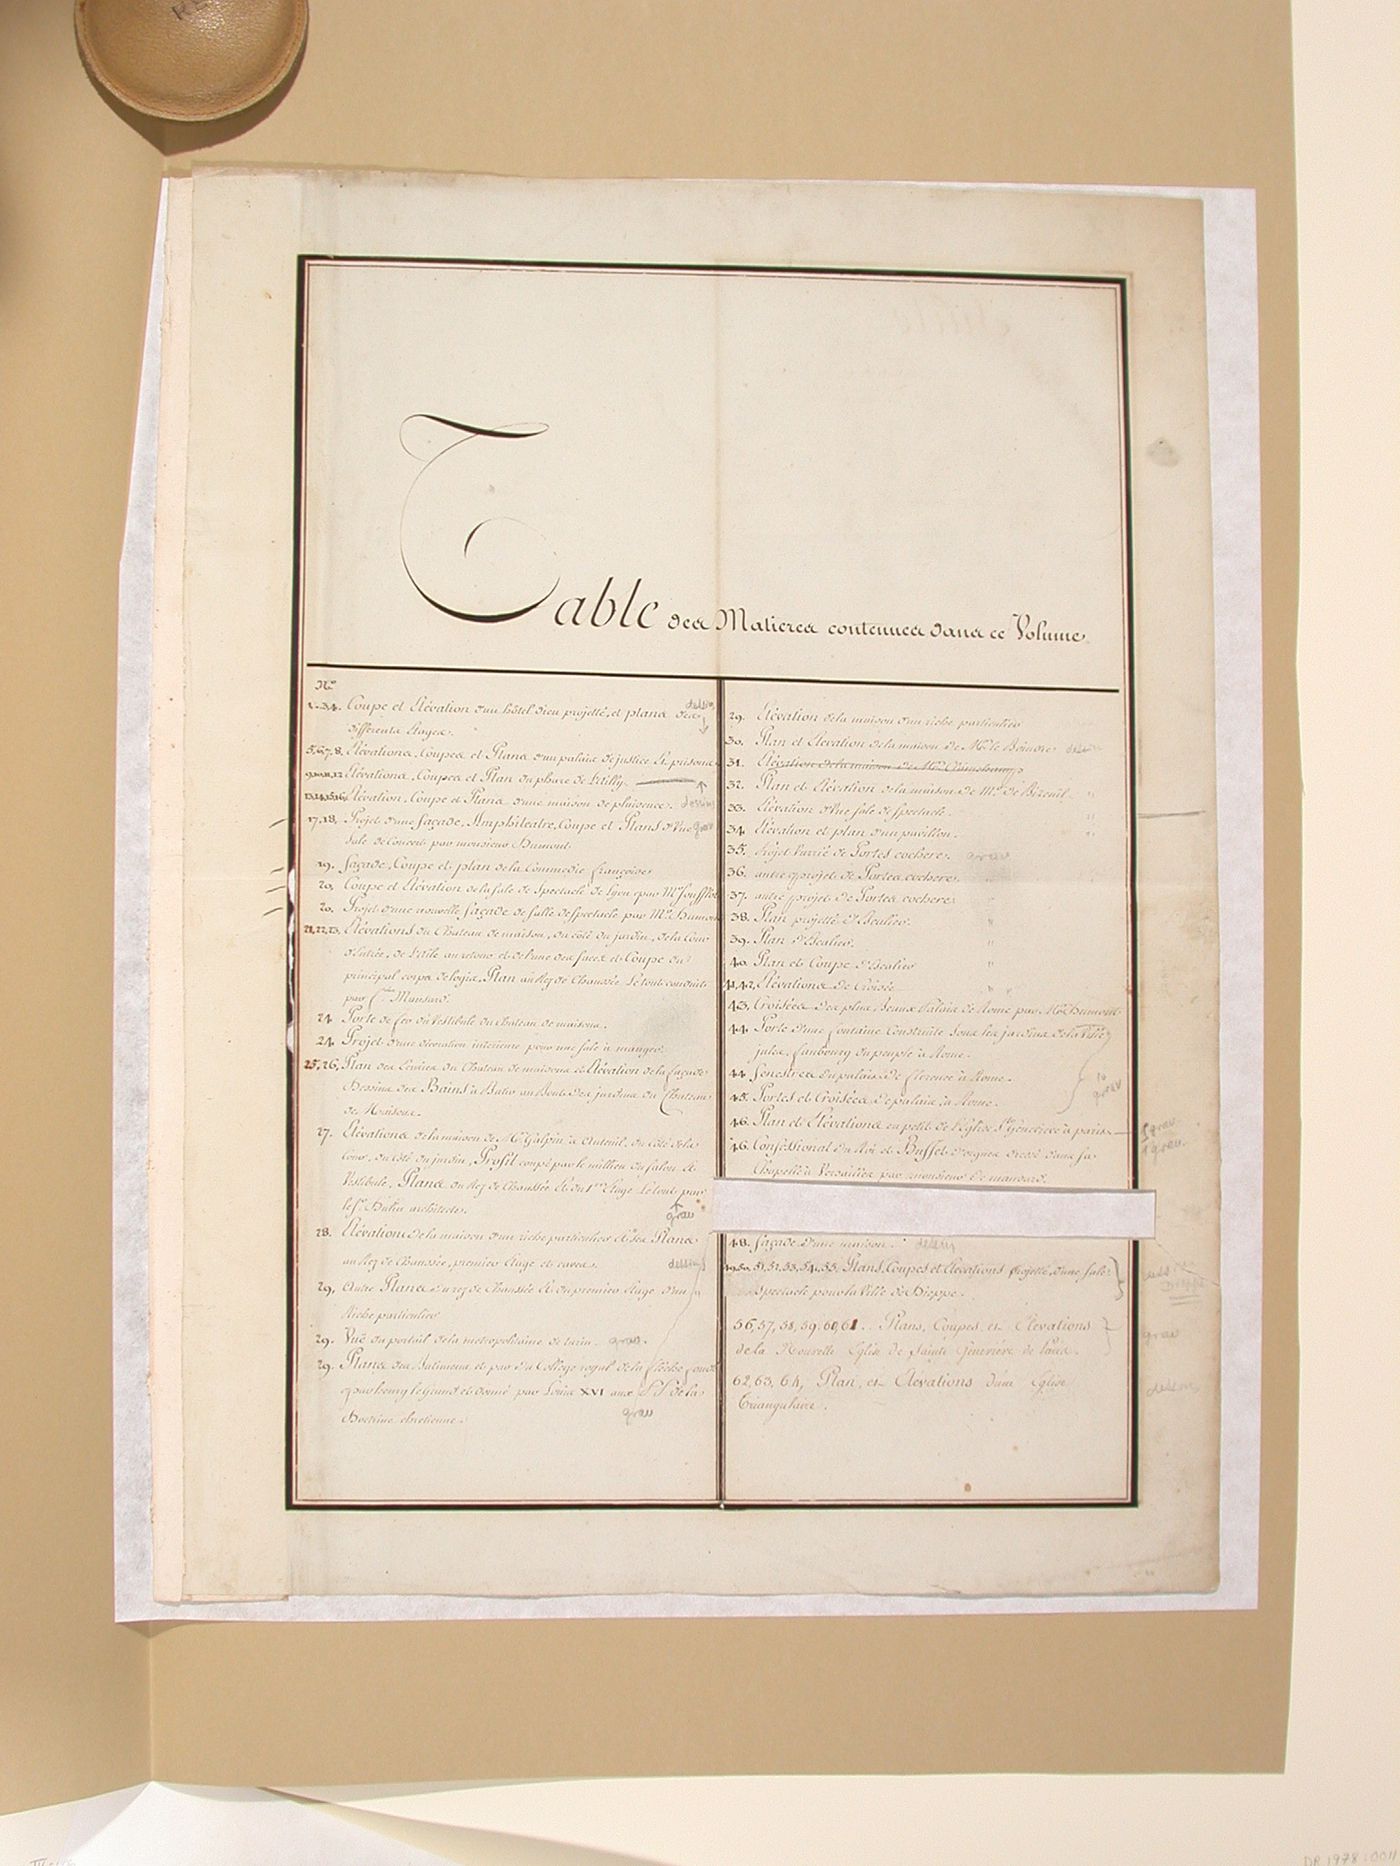 Table des Matieres contenues dans ce Volume
N.os
1..3.4. Coupe et Elévation d'un hôtel dieu projetté, et plans des
dessins
différents Etages.
5,6,7,8. Elévations, Coupes et Plans d'un palais de justice et prisons
9,10,11,12 Elévations, Coupes et Plan du phare de l'ailly
13,14,15,16. Elévation, Coupe et Plans d'une maison de plaisence. dessins
17,18. Projet d'une façade, Amphiteatre, Coupe et Plans d'une grav
sale de Concert par monsieur Dumont.
19. façade, Coupe et plan de la Commedie françoise
20. Coupe et Elévation de la sale de Spectacle de Lyon par Mr Soufflot
20. Projet d'une nouvelle façade de salle de spectacle par Mr. Dumont
21,22,23. Elévations du Chateau de maison, du côté du jardin, de la Cour
d'entrée, de l'aile au retour et de l'une des faces et Coupe du
principal corps de logis, Plan au Rez de Chaussée. Le tout conduit
par Mansard.
24. Porte de fer du Vestibule du Chateau de maisons.
24. Projet d'une décoration intérieure pour une sale à manger.
25,26, Plan des Ecuries du Chateau de maisons et Elévation de la façade
Dessins des Bains à Batir au Bout des jardins du Chateau
de Maisons.
27. Elévations de la maison de Mr Galpin à Auteuil, du côté de la
Cour, du côté du jardin, Profil coupé par le millieu du salon et
Vestibule, Plans du Rez de Chaussée et du 1er Etage. Le tout par
le Sr. Dulin architecte.
grav
28. Elévations de la maison d'un riche particulier et ses Plans
au Rez de Chaussée, premier Etage et caves. dessins
29, Autre Plans du rez de Chaussée et du premier Etage d'un
Riche particulier
29. Vue du portail de la metropolitaine de turin. grav.
29. Plans des Batimens et parc du College royal de la flèche fondé
par henry le Grand et donné par Louis XVI aux P.P. de la
Doctrine chretienne.
grav
29. Elévation de la maison d'un riche particulier
30. Plan et Elevation de la maison de Mr. le Boindre dessin
31. Elévation de la maison de Mr.
32. Plan et Elévation de la maison de Mr. de Bizeuil "
33. Elévation d'une sale de spectacle. "
34. Elévation et plan d'un pavillon. "
35. Projet varrié de Portes cocheres. grav
36. autre projet de Portes cocheres. "
37. autre projet de Portes cocheres "
38. Plan projetté d'Escalier. "
39. Plan d'Escalier. "
40. Plan et Coupe d'Escalier "
41,42, Elévations de Croisée "
43, Croisées des plus Beaux Palais de Rome par Mr. Dumont
44. Porte d'une fontaine Construite sous les jardins de la Ville
jules, faubourg du peuple à Rome.
44. fenestres du palais de florence à Rome.
45. Portes et Croisées de palais, à Rome.
10
grav
46. Plan et Elévations en petit de l'Eglise Ste Genevieve à paris
1 grav
46. Confessional du Roi et Buffet d'orgues dressé dans sa
1 grav.
Chapelle à Versailles par monsieur de mansard.
48. façade d'une maison. dessin
49,50,51,52,53,54,55. Plans, Coupes et Elevations projetté d'une sale
Spectacle pour la Ville de Dieppe.
Dieppe
56,57,58,59,60,61.. Plans, Coupes, et Elevations
de la Nouvelle Eglise de Sainte Geneviève de Paris.
grav
62,63,64, Plan, et Elevations d'une Eglise
dessins
Triangulaire.
DR 1978:0011